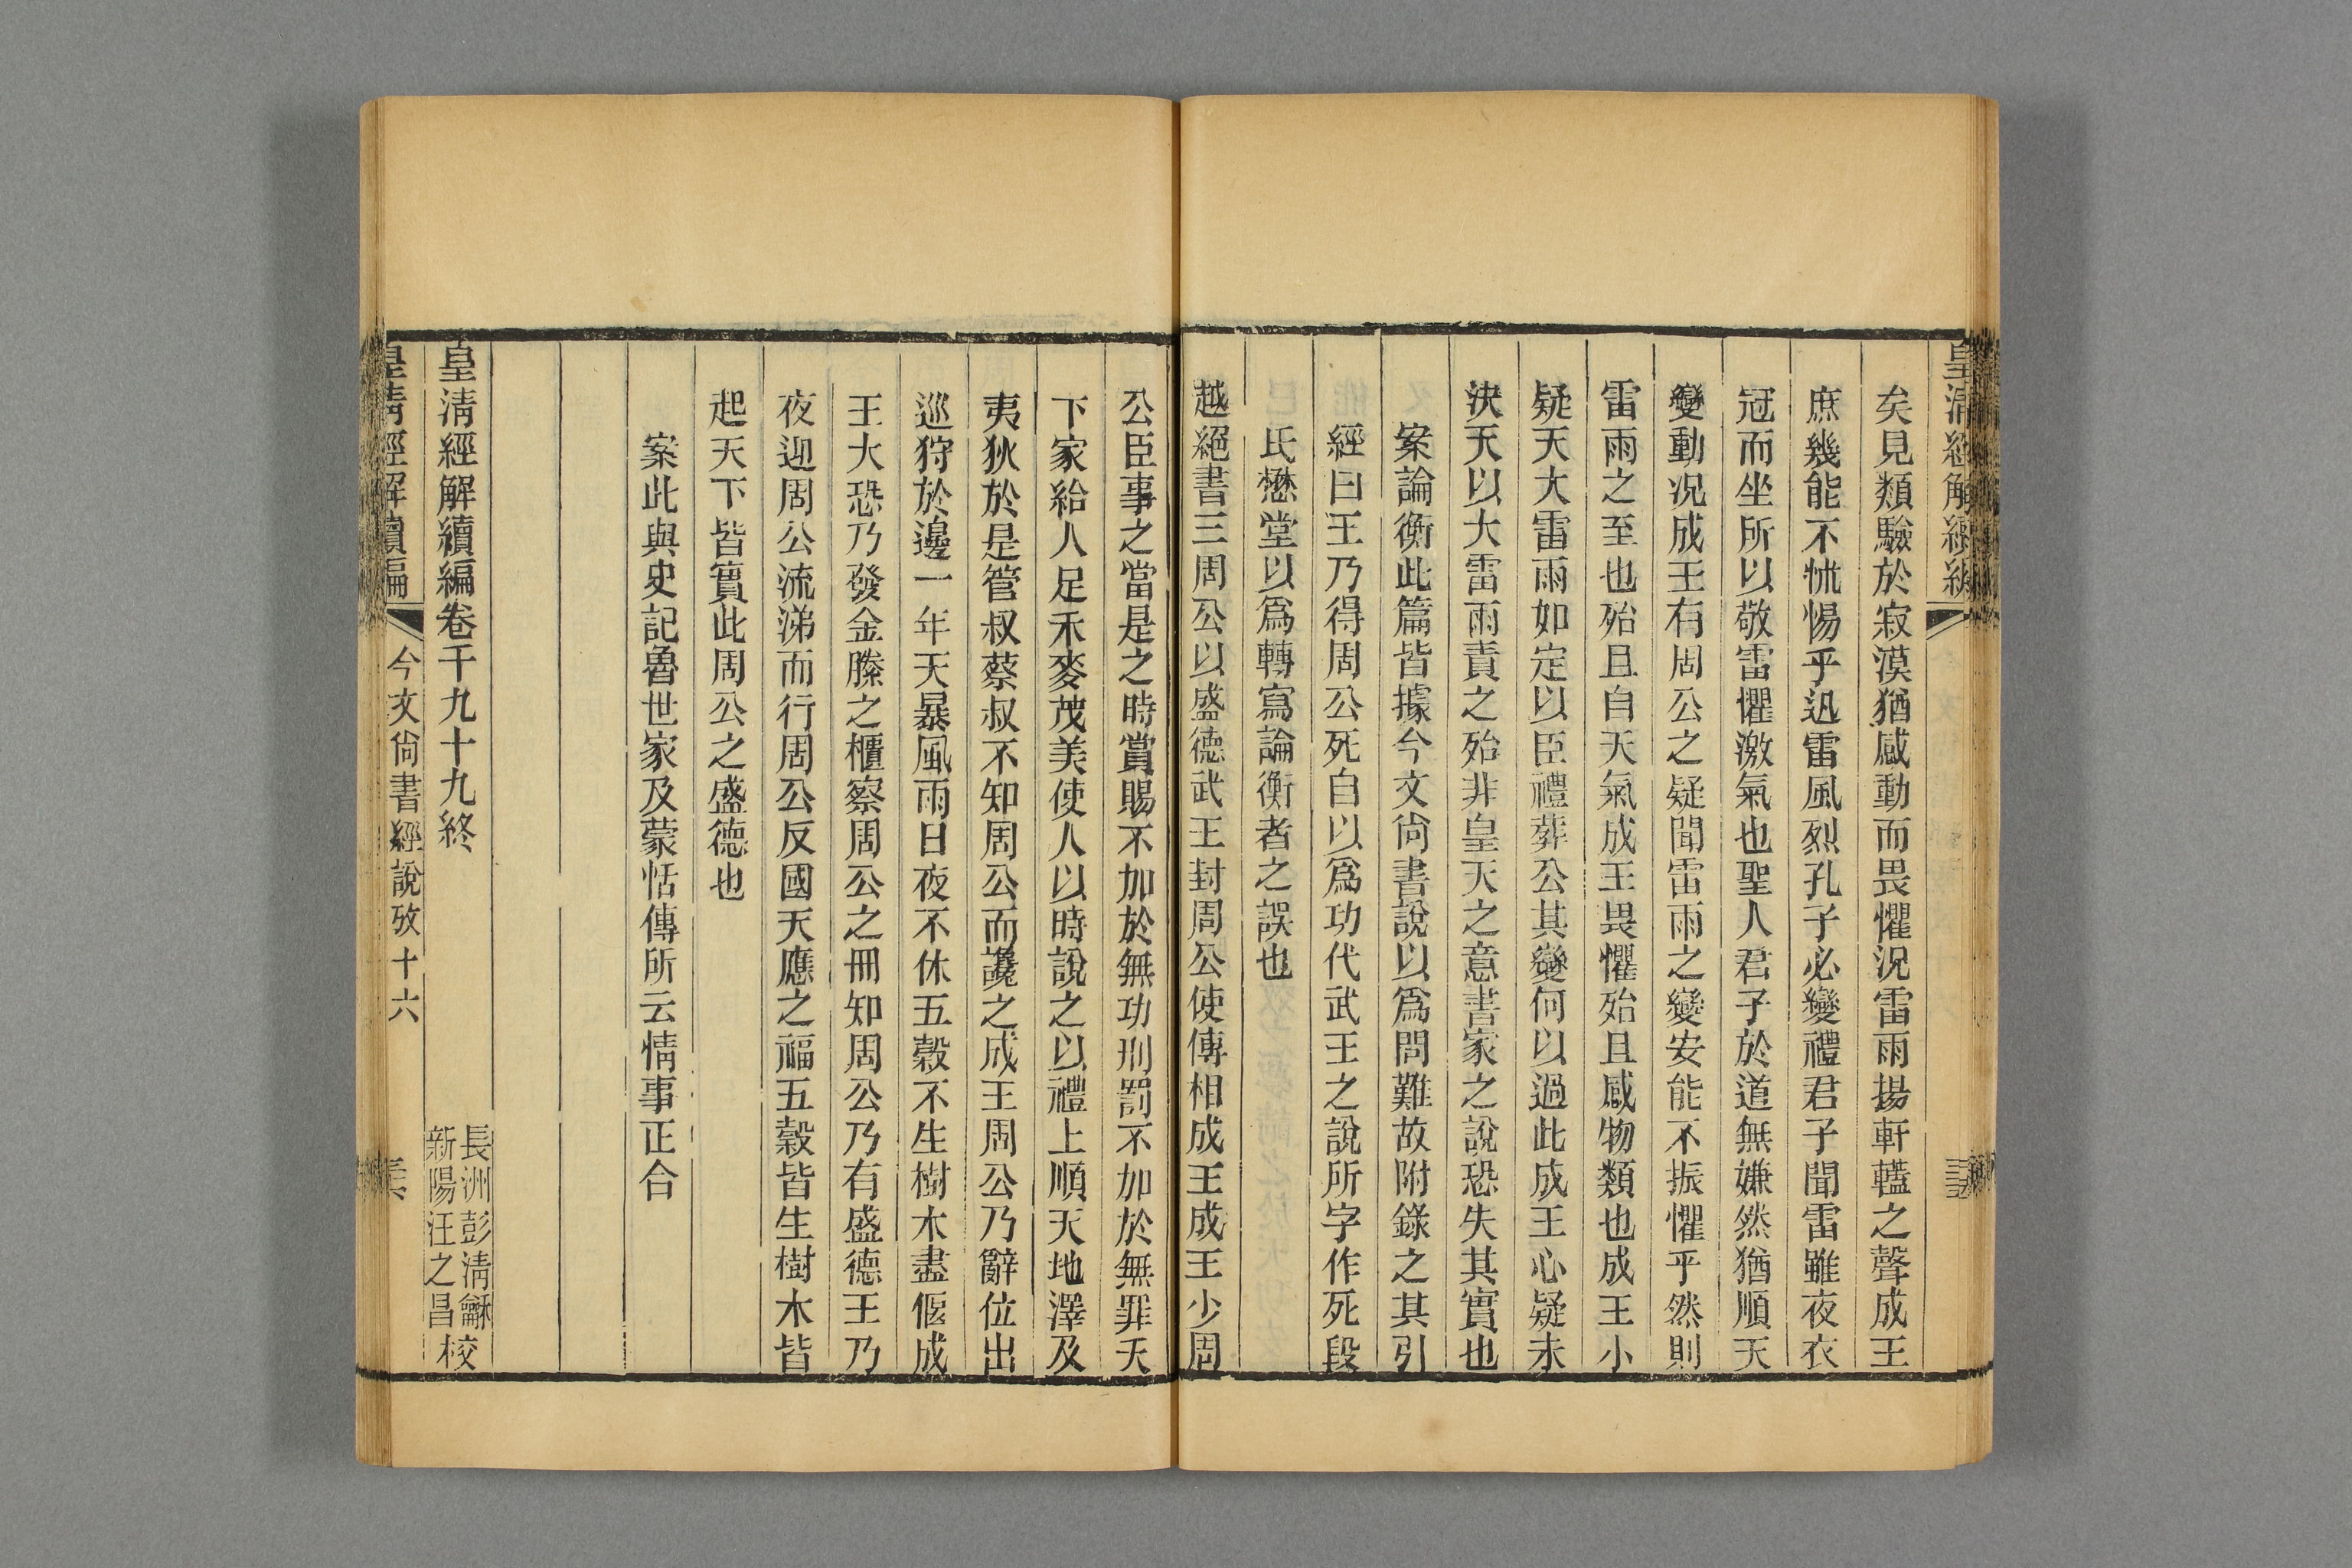 矣見類驗於寂漠猶感動而畏懼況雷雨揚軒䡷之聲成王
庶幾能不怵惕乎迅雷風烈孔子必變禮君子聞雷雖夜衣
冠而坐所以敬雷懼激氣也聖人君子於道無嫌然猶順天
變動況成王有周公之疑聞雷雨之變安能不振懼乎然則
雷雨之至也殆且自天氣成王畏懼殆且感物類也成王小
疑天大雷雨如定以臣禮葬公其變何以過此成王心疑未
決天以大雷雨責之殆非皇天之意書家之說恐失其實也
案論衡此篇皆據今文尙書說以爲問難故附錄之其引
經曰王乃得周公死自以爲功代武王之說所字作死段
氏懋堂以爲轉寫論衡者之誤也
越絕書三周公以盛德武王封周公使傳相成王成王少周
公臣事之當是之時賞賜不加於無功刑罰不加於無罪天
下家給人足禾麥茂美使人以時說之以禮上順天地澤及
夷狄於是管叔蔡叔不知周公而讒之成王周公乃辭位出
巡狩於邊一年天暴風雨日夜不休五穀不生樹木盡偃成
王大恐乃發金縢之櫃察周公之冊知周公乃有盛德王乃
夜迎周公流涕而行周公反國天應之福五穀皆生樹木皆
起天下皆實此周公之盛德也
案此與史記魯世家及蒙恬傳所云情事正合
皇淸經解續編卷千九十九終
長洲彭淸龢
新陽汪之昌
校
皇淸經解續編
今文尙書經說攷十六